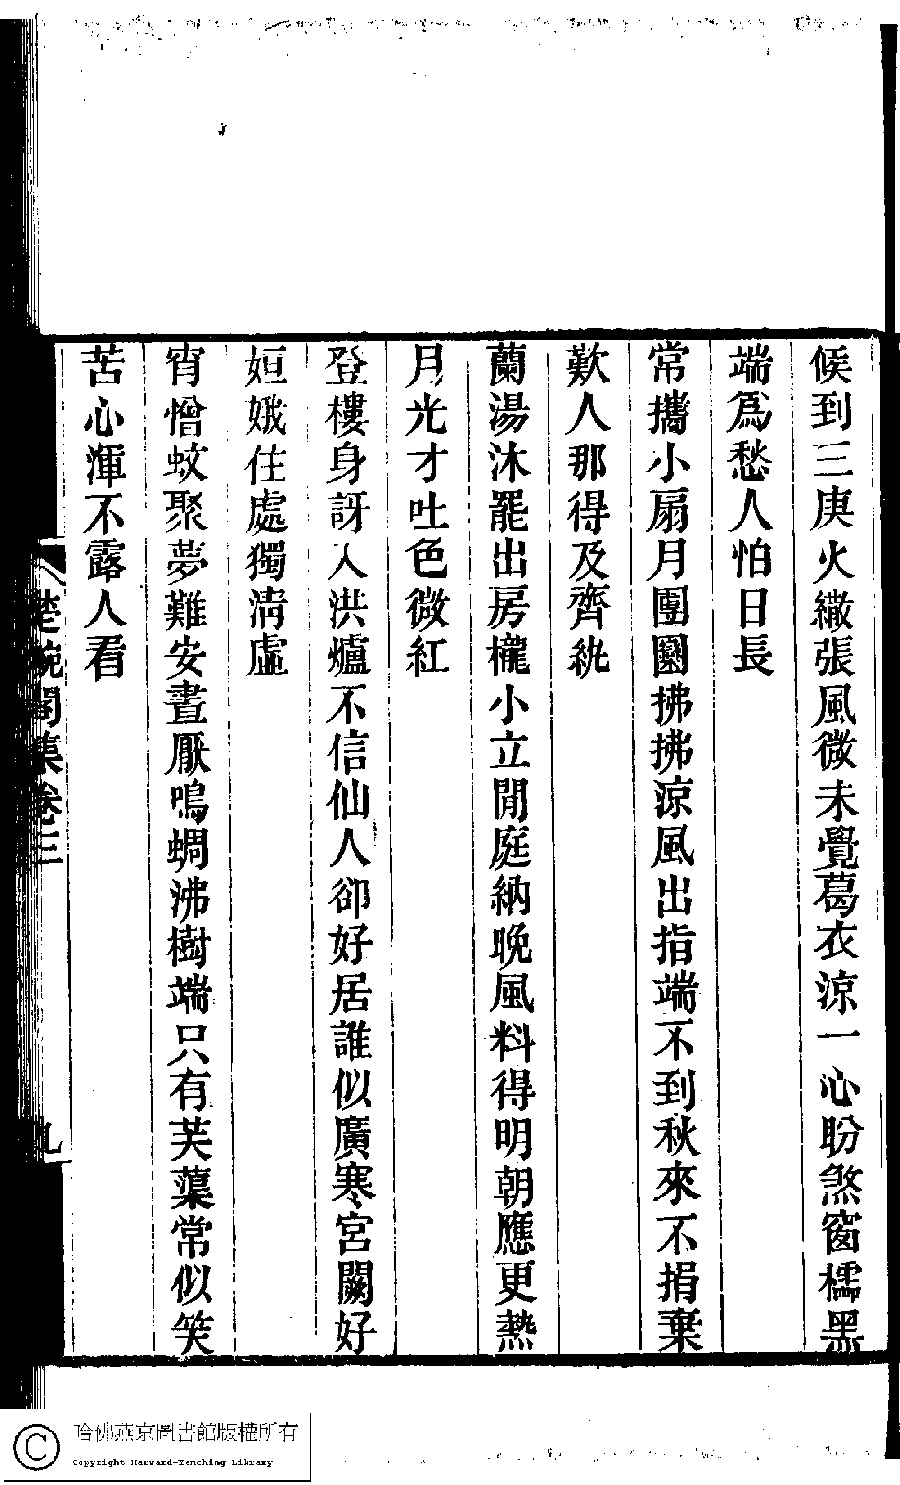 候到三庚火繖張風微未覺葛衣涼一心盼煞窗櫺黑
端爲愁人怕日長
常攜小扇月團圞拂拂涼風出指端不到秋來不捐棄
歎人那得及齊紈
蘭湯沐罷出房櫳小立閒庭納晚風料得明朝應更熱
月光才吐色微紅
登樓身訝入洪爐不信仙人卻好居誰似廣寒宮闕好
姮娥住處獨淸虛
宵憎蚊聚夢難安晝厭鳴蜩沸樹端只有芙蕖常似笑
苦心渾不露人看
閣集卷三
九
哈佛燕京圖書館版權所有
Copyright Harvard-Yenching Library